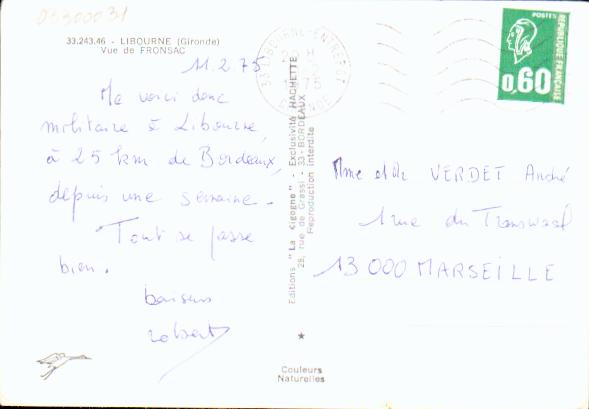 05300031
33.243.46 - LIBOURNE (Gironde)
Vue de FRONSAC
11.2.75
Me voici donc
militaire à Libourne,
à 25 km de Bordeaux,
depuis une semaine.
Tout se passe
bien.
baisers
robert
Editions "La Cigogne" - Exclusivité HACHETTE
28, rue de Grassi - 33-BORDEAUX
Reproduction interdite
Couleurs
Naturelles
33 LIBOURNE-ENTREPOT
GIRONDE
POSTES
0,60
REPUBLIQUE FRANÇAISE
Mme et Mr VERDET André
1 rue du
13000 MARSEILLE